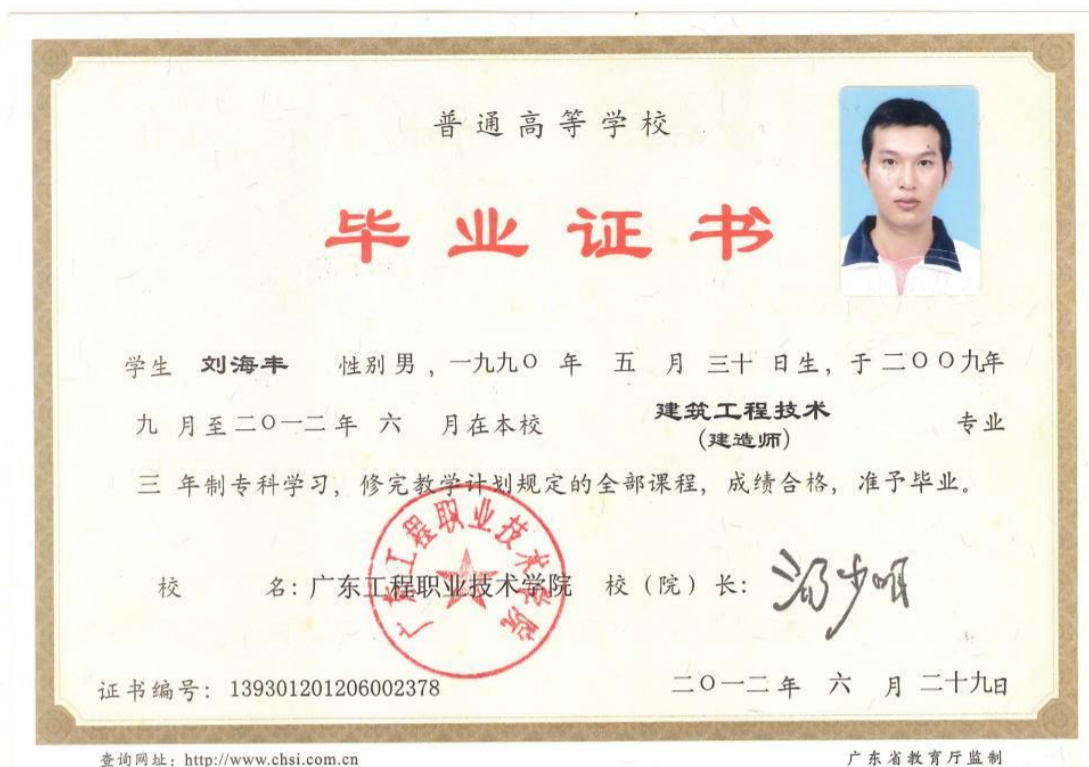 普通高等学校
毕业证书
学生 刘海丰 性别 男 , 一九九〇 年 五 月 三十 日生, 于 二〇〇九年
九 月至 二〇一二 年 六 月在本校 建筑工程技术 专业
(建造师)
三 年制专科学习, 修完教学计划规定的全部课程, 成绩合格, 准予毕业。
广东工程职业技术学院
校 名: 广东工程职业技术学院 校（院）长:
证书编号: 139301201206002378 二〇一二 年 六 月 二十九日
查询网址: http://www.chsi.com.cn 广东省教育厅监制